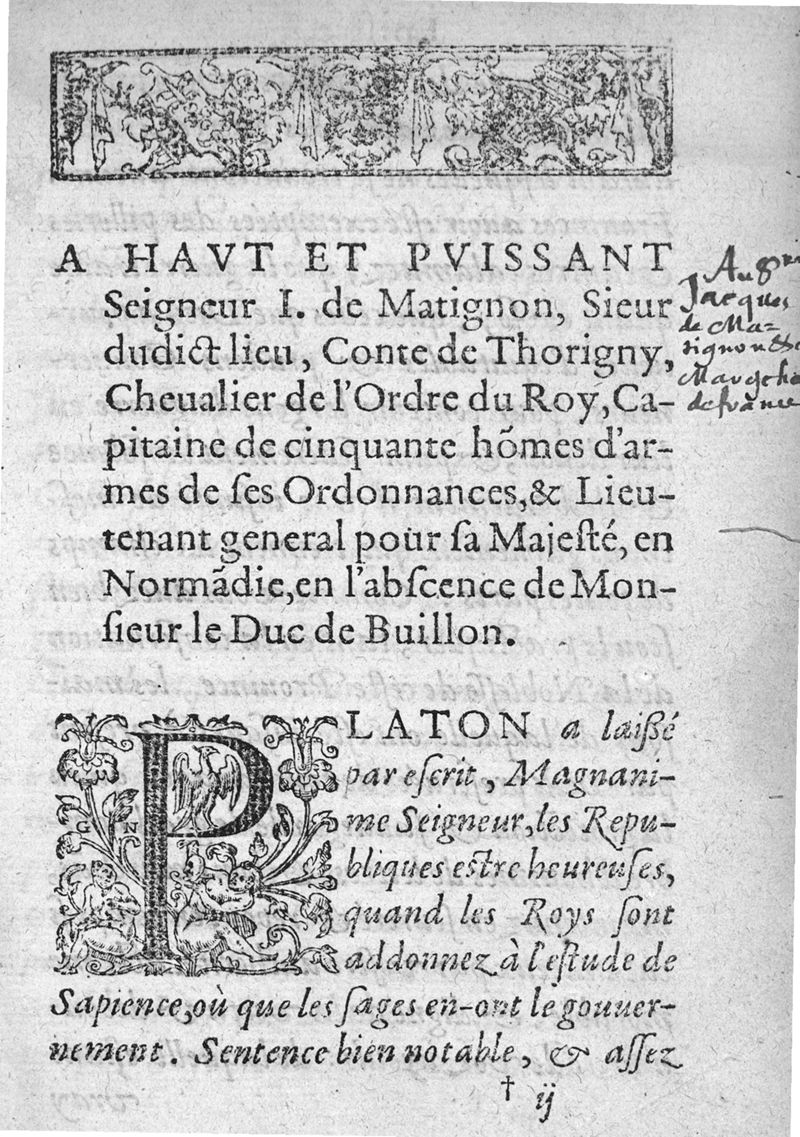 A HAVT ET PVISSANT
Seigneur I. de Matignon, Sieur
dudict lieu, Conte de Thorigny,
Cheualier de l'Ordre du Roy, Ca-
pitaine de cinquante hõmes d'ar-
mes de ſes Ordonnances, & Lieu-
tenant general pour ſa Majeſté, en
Normãdie, en l'abſcence de Mon-
ſieur le Duc de Buillon.
Jacques
de Ma-
tignon
de france
PLATON a laiſſé
par eſcrit, Magnani-
me Seigneur, les Repu-
bliques eſtre heureuſes,
quand les Roys ſont
addonnez à l'eſtude de
Sapience, où que les ſages en-ont le gouuer-
nement. Sentence bien notable, & aſſez
† ij